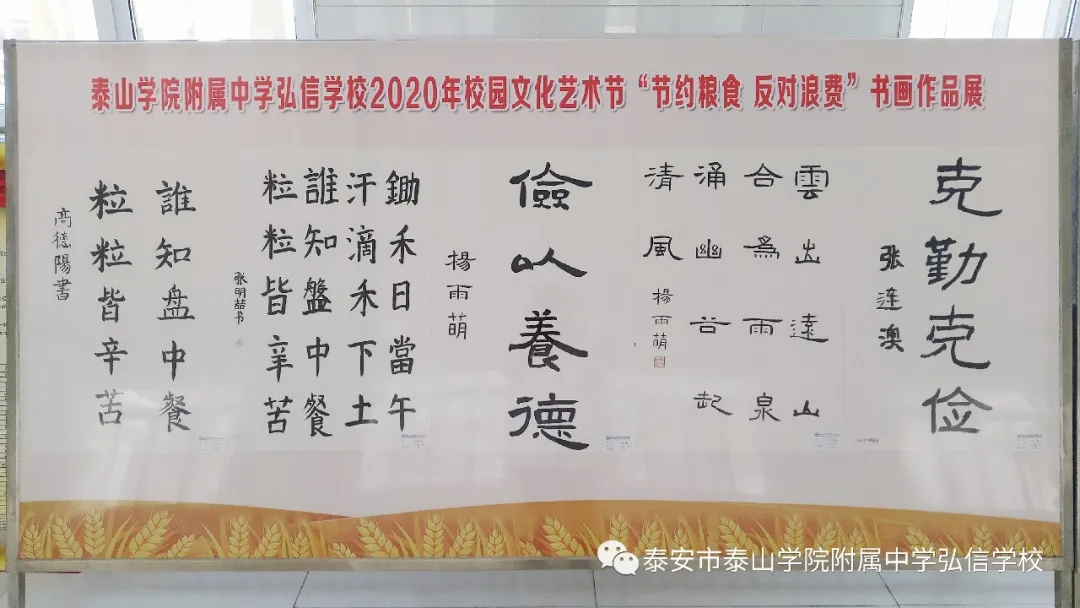 泰山学院附属中学弘信学校2020年校园文化艺术节“节约粮食 反对浪费”书画作品展
克勤克俭
张连澳
雲出遠山
合為雨泉
涌幽谷起
清風
楊雨萌
儉以養德
楊雨萌
鋤禾日當午
汗滴禾下土
誰知盤中餐
粒粒皆辛苦
张明喆书
誰知盘中餐
粒粒皆辛苦
高德陽書
泰安市泰山学院附属中学弘信学校